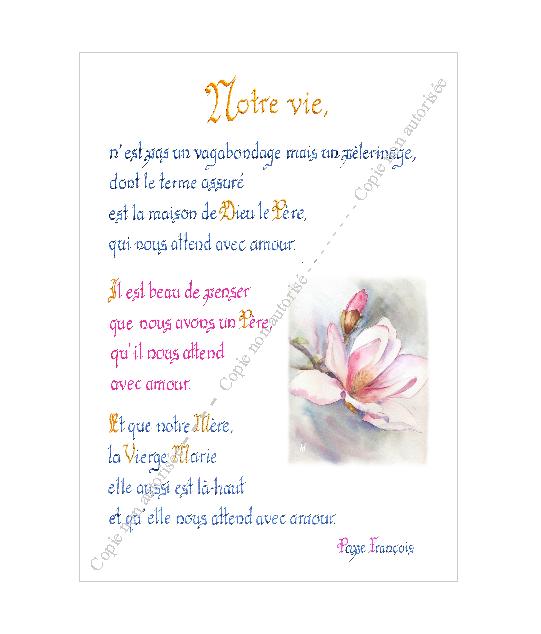 Notre vie,
n'est pas un vagabondage mais un pèlerinage,
dont le terme assuré
est la maison de Dieu le Père,
qui nous attend avec amour.
Il est beau de penser
que nous avons un Père,
qu'il nous attend
avec amour.
Et que notre Mère,
la Vierge Marie
elle aussi est là-haut
et qu'elle nous attend avec amour.
Pape François
Copie non autorisée - - - - - - - Copie non autorisée - - - - - - - Copie non autorisée